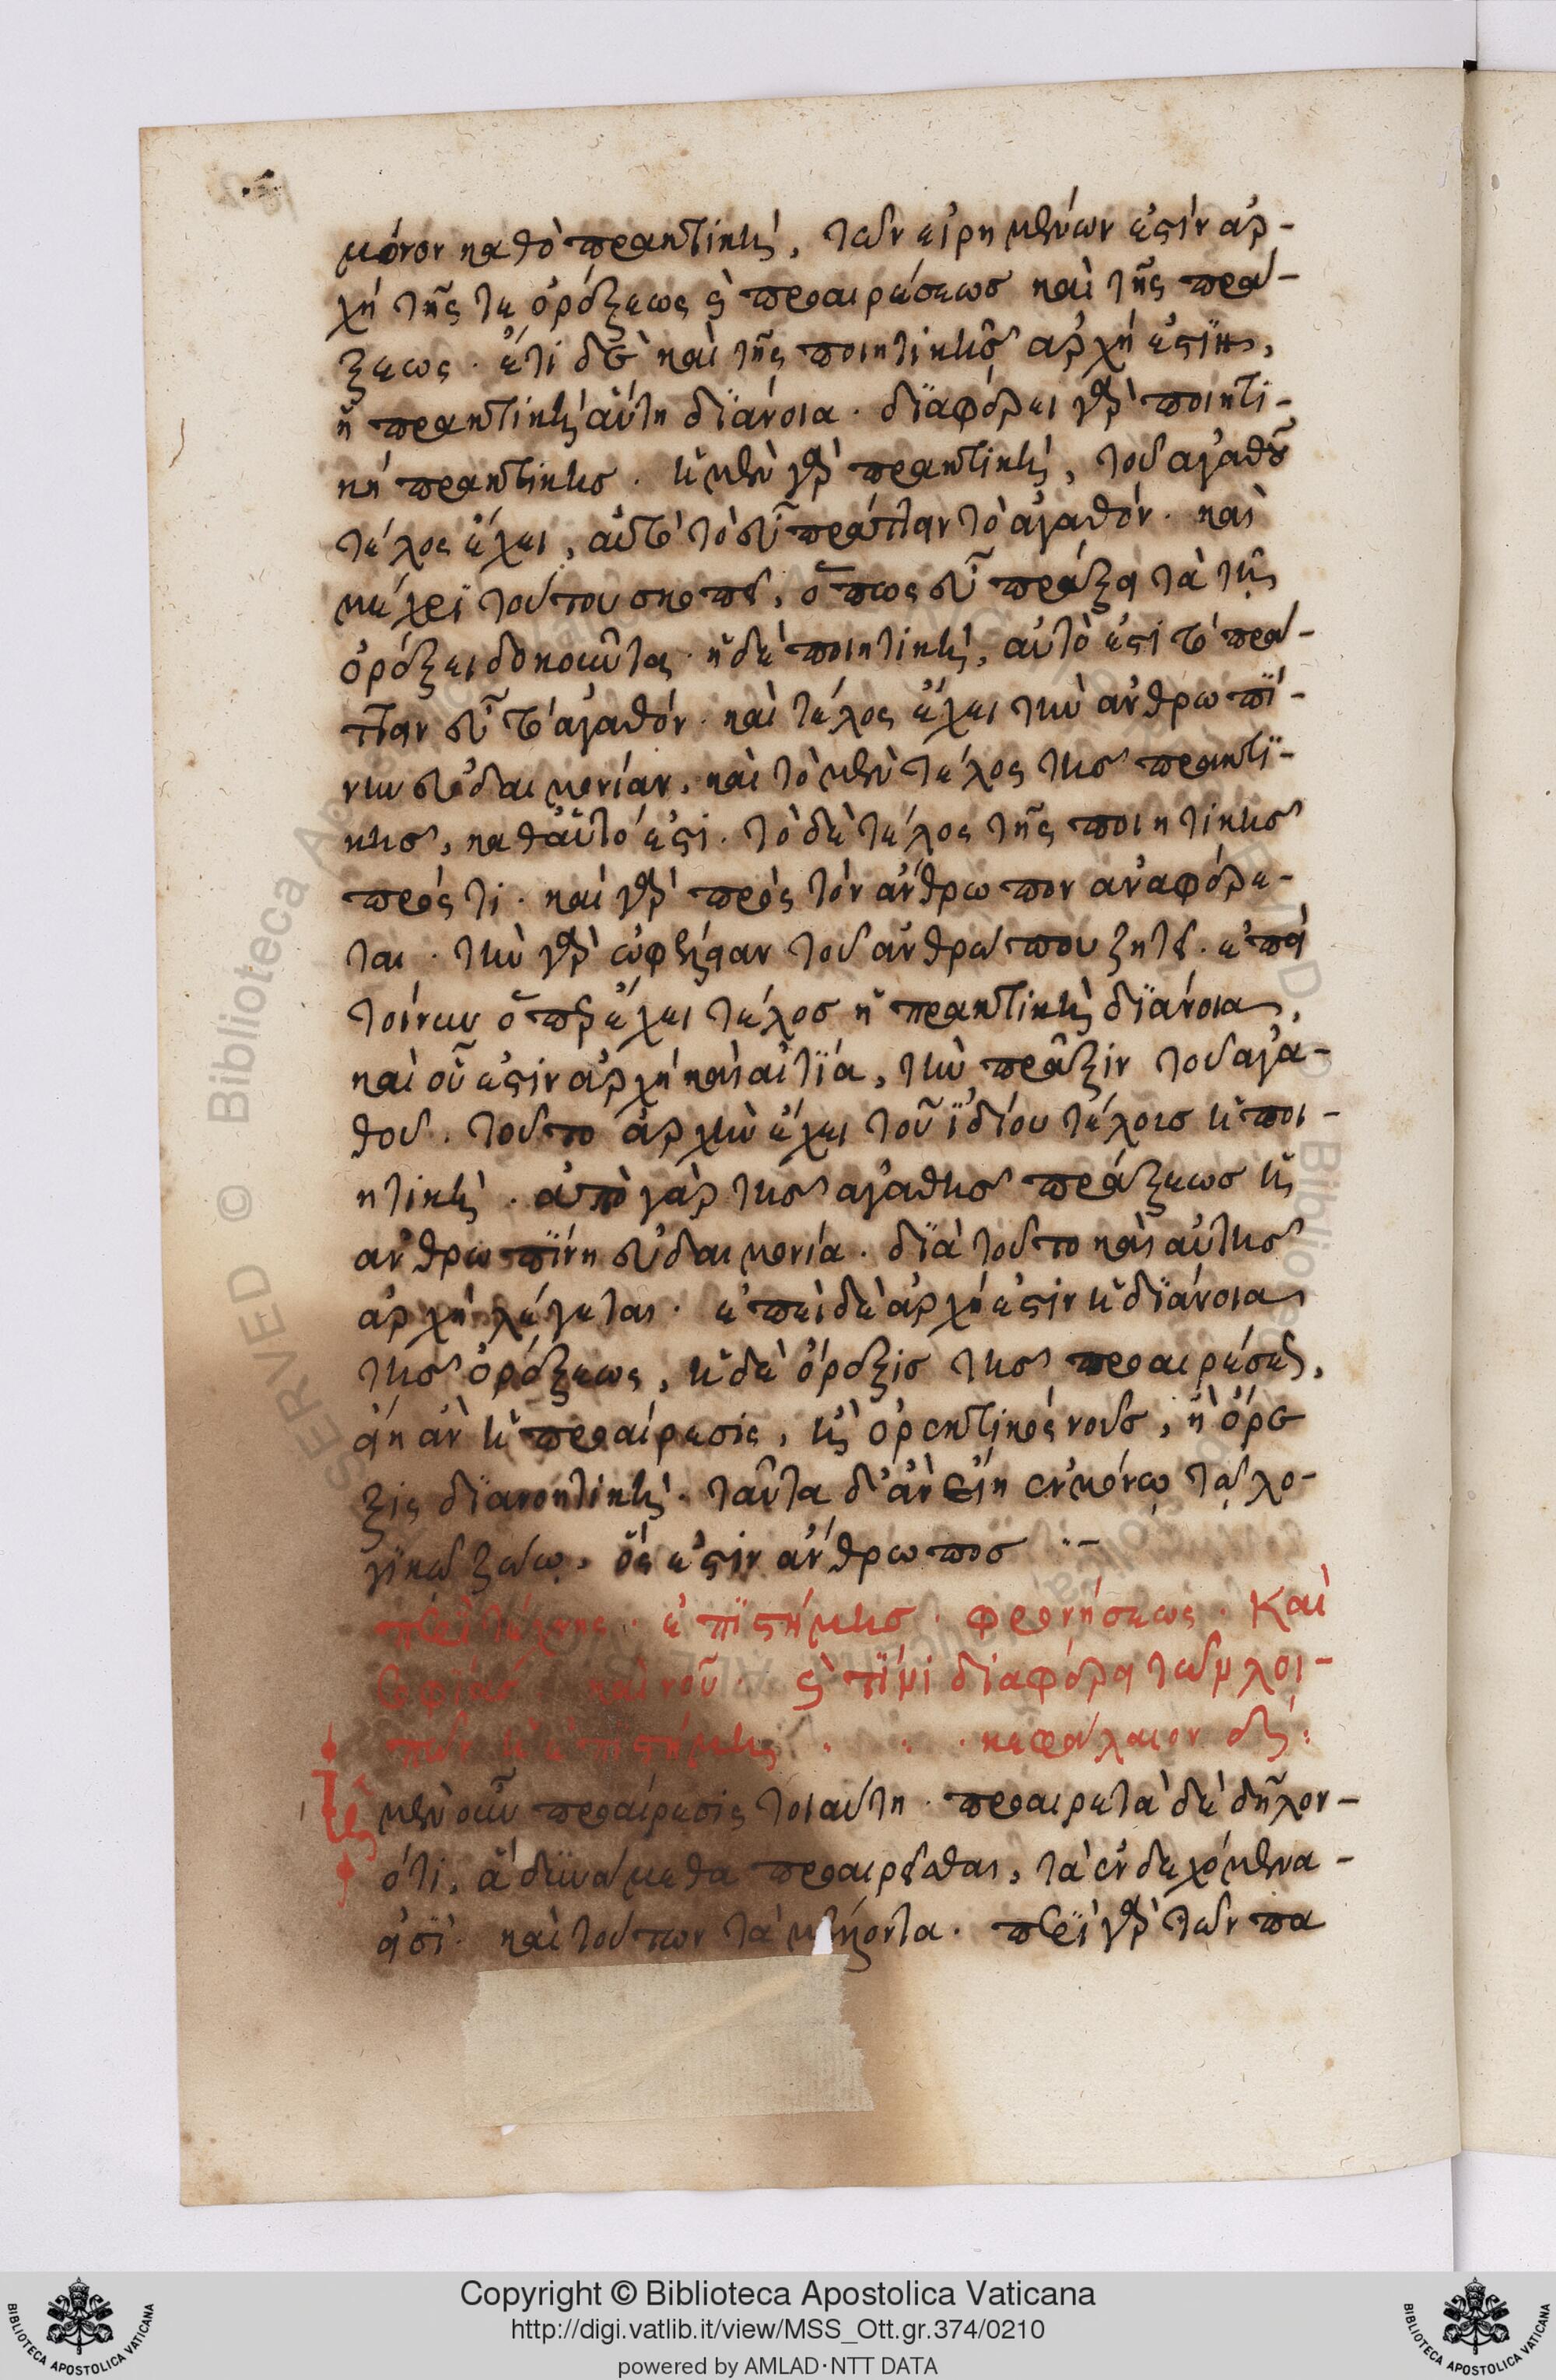 μόνον καθὸ πρακτικὴ, τῶν εἰρημένων ἐστὶν ἀρ-
χὴ τῆς τε ὀρέξεως καὶ προαιρέσεως καὶ τῆς πρά-
ξεως. ἔτι δὲ καὶ τῆς ποιητικῆς ἀρχή ἐστιν,
ἡ πρακτικὴ αὕτη διάνοια. διαφέρει γὰρ ποιητι-
κὴ πρακτικῆς. ἡ μὲν γὰρ πρακτικὴ, τοῦ ἀγαθοῦ
τέλος ἔχει, αὐτὸ τὸ εὖ πράττειν τὸ ἀγαθόν. καὶ
μέχρι τούτου σκοπεῖ, ὅπως εὖ πράξῃ τὰ τῇ
ὀρέξει δοκοῦντα. ἡ δὲ ποιητικὴ, αὐτὸ ἐστὶ τὸ πρά-
ττειν εὖ τὸ ἀγαθόν. καὶ τέλος ἔχει τὴν ἀνθρωπί-
νην εὐδαιμονίαν. καὶ τὸ μὲν τέλος τῆς πρακτι-
κῆς, καθαὑτό ἐστι. τὸ δὲ τέλος τῆς ποιητικῆς
πρός τι. καὶ γὰρ πρὸς τὸν ἄνθρωπον ἀναφέρε-
ται. τὴν γὰρ ὠφέλειαν τοῦ ἀνθρώπου ζητεῖ. ἐπεὶ
τοίνυν ὅπερ ἔχει τέλος ἡ πρακτικὴ διάνοια,
καὶ οὗ ἐστιν ἀρχὴ καὶ αἰτία, τὴν πρᾶξιν τοῦ ἀγα-
θοῦ. τοῦτο ἀρχὴν ἔχει τοῦ ἰδίου τέλους ἡ ποι-
ητικὴ. ἀπὸ γὰρ τῆς ἀγαθῆς πράξεως ἡ
ἀνθρωπίνη εὐδαιμονία. διὰ τοῦτο καὶ αὐτῆς
ἀρχὴ λέγεται. ἐπεὶ δὲ ἀρχή ἐστιν ἡ διάνοια
τῆς ὀρέξεως, ἡ δὲ ὄρεξις τῆς προαιρέσεως,
εἴη ἂν ἡ προαίρεσις, ἢ ὀρεκτικὸς νοῦς, ἢ ὄρε
ξις διανοητικὴ. ταῦτα δ' ἂν εἴη ἐν μόνῳ τῷ λο-
γικῷ ζώῳ, ὅς ἐστιν ἄνθρωπος
περὶ τέχνης. ἐπιστήμης. φρονήσεως. καὶ
σοφίας. καὶ νοῦ. καὶ τίνι διαφέρει τῶν λοι-
πῶν ἡ ἐπιστήμης. κεφάλαιον
μὲν οὖν προαίρεσις τοιαύτη. προαιρετὰ δὲ δῆλον-
ότι, ἃ δυνάμεθα προαιρεῖσθαι, τὰ ἐνδεχόμενα-
εἰσὶ. καὶ τούτων τὰ μέλλοντα. περὶ γὰρ τῶν πα
Copyright © Biblioteca Apostolica Vaticana
http://digi.vatlib.it/view/MSS_Ott.gr.374/0210
powered by AMLAD·NTT DATA